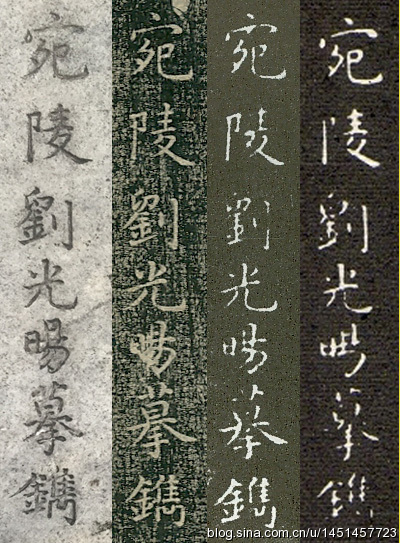 宛陵劉光暘摹鐫
宛陵劉光暘摹鐫
宛陵劉光暘摹鐫
宛陵劉光暘摹鐫
blog.sina.com.cn/u/1451457723